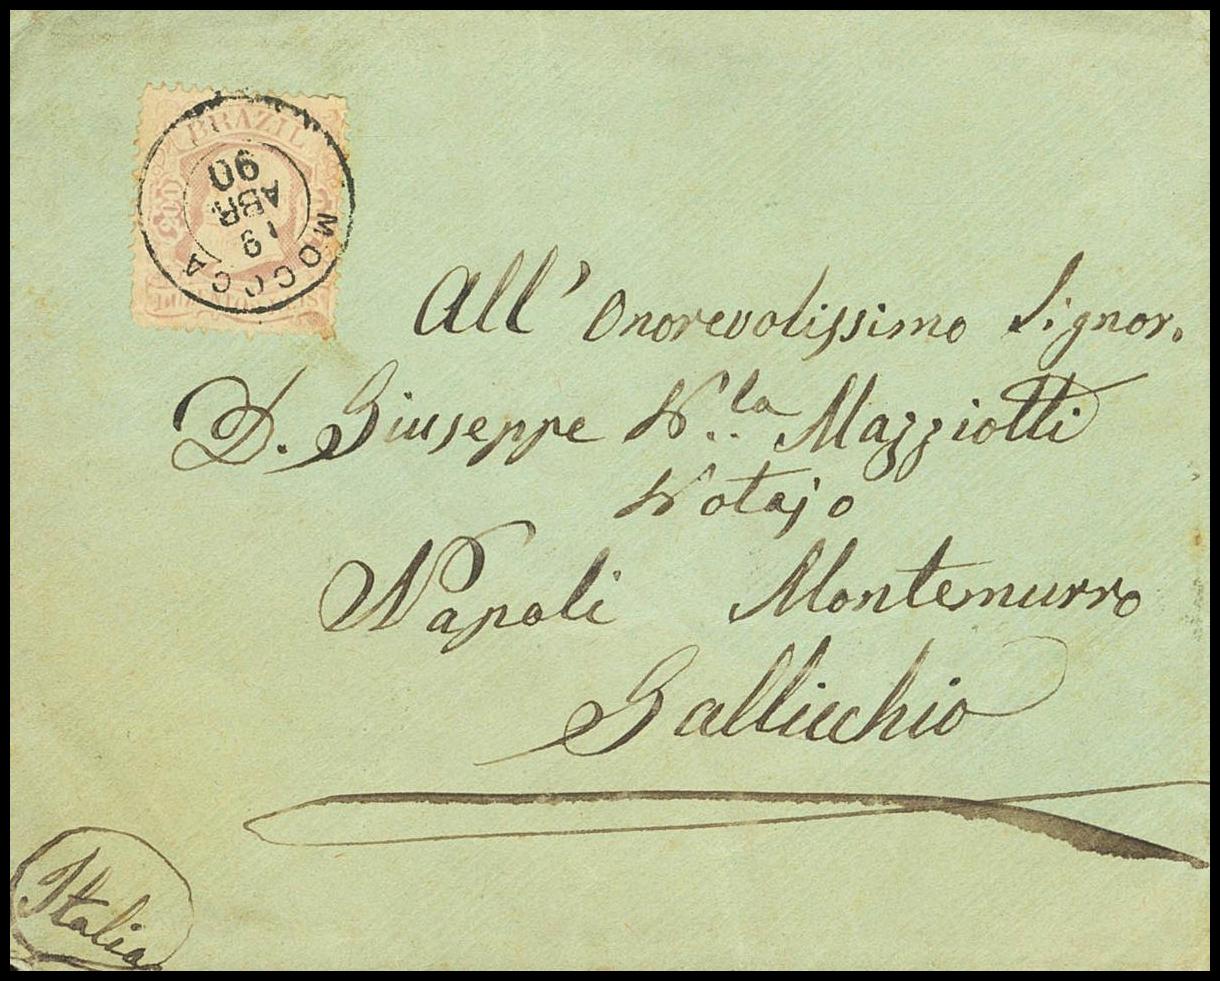 BRAZIL
MOCOCA
19
ABR.
90
All' Onorevolissimo Signor.
D. Giuseppe N.la Mazziotti
Notajo
Napoli Montemurro
Gallicchio
Italia